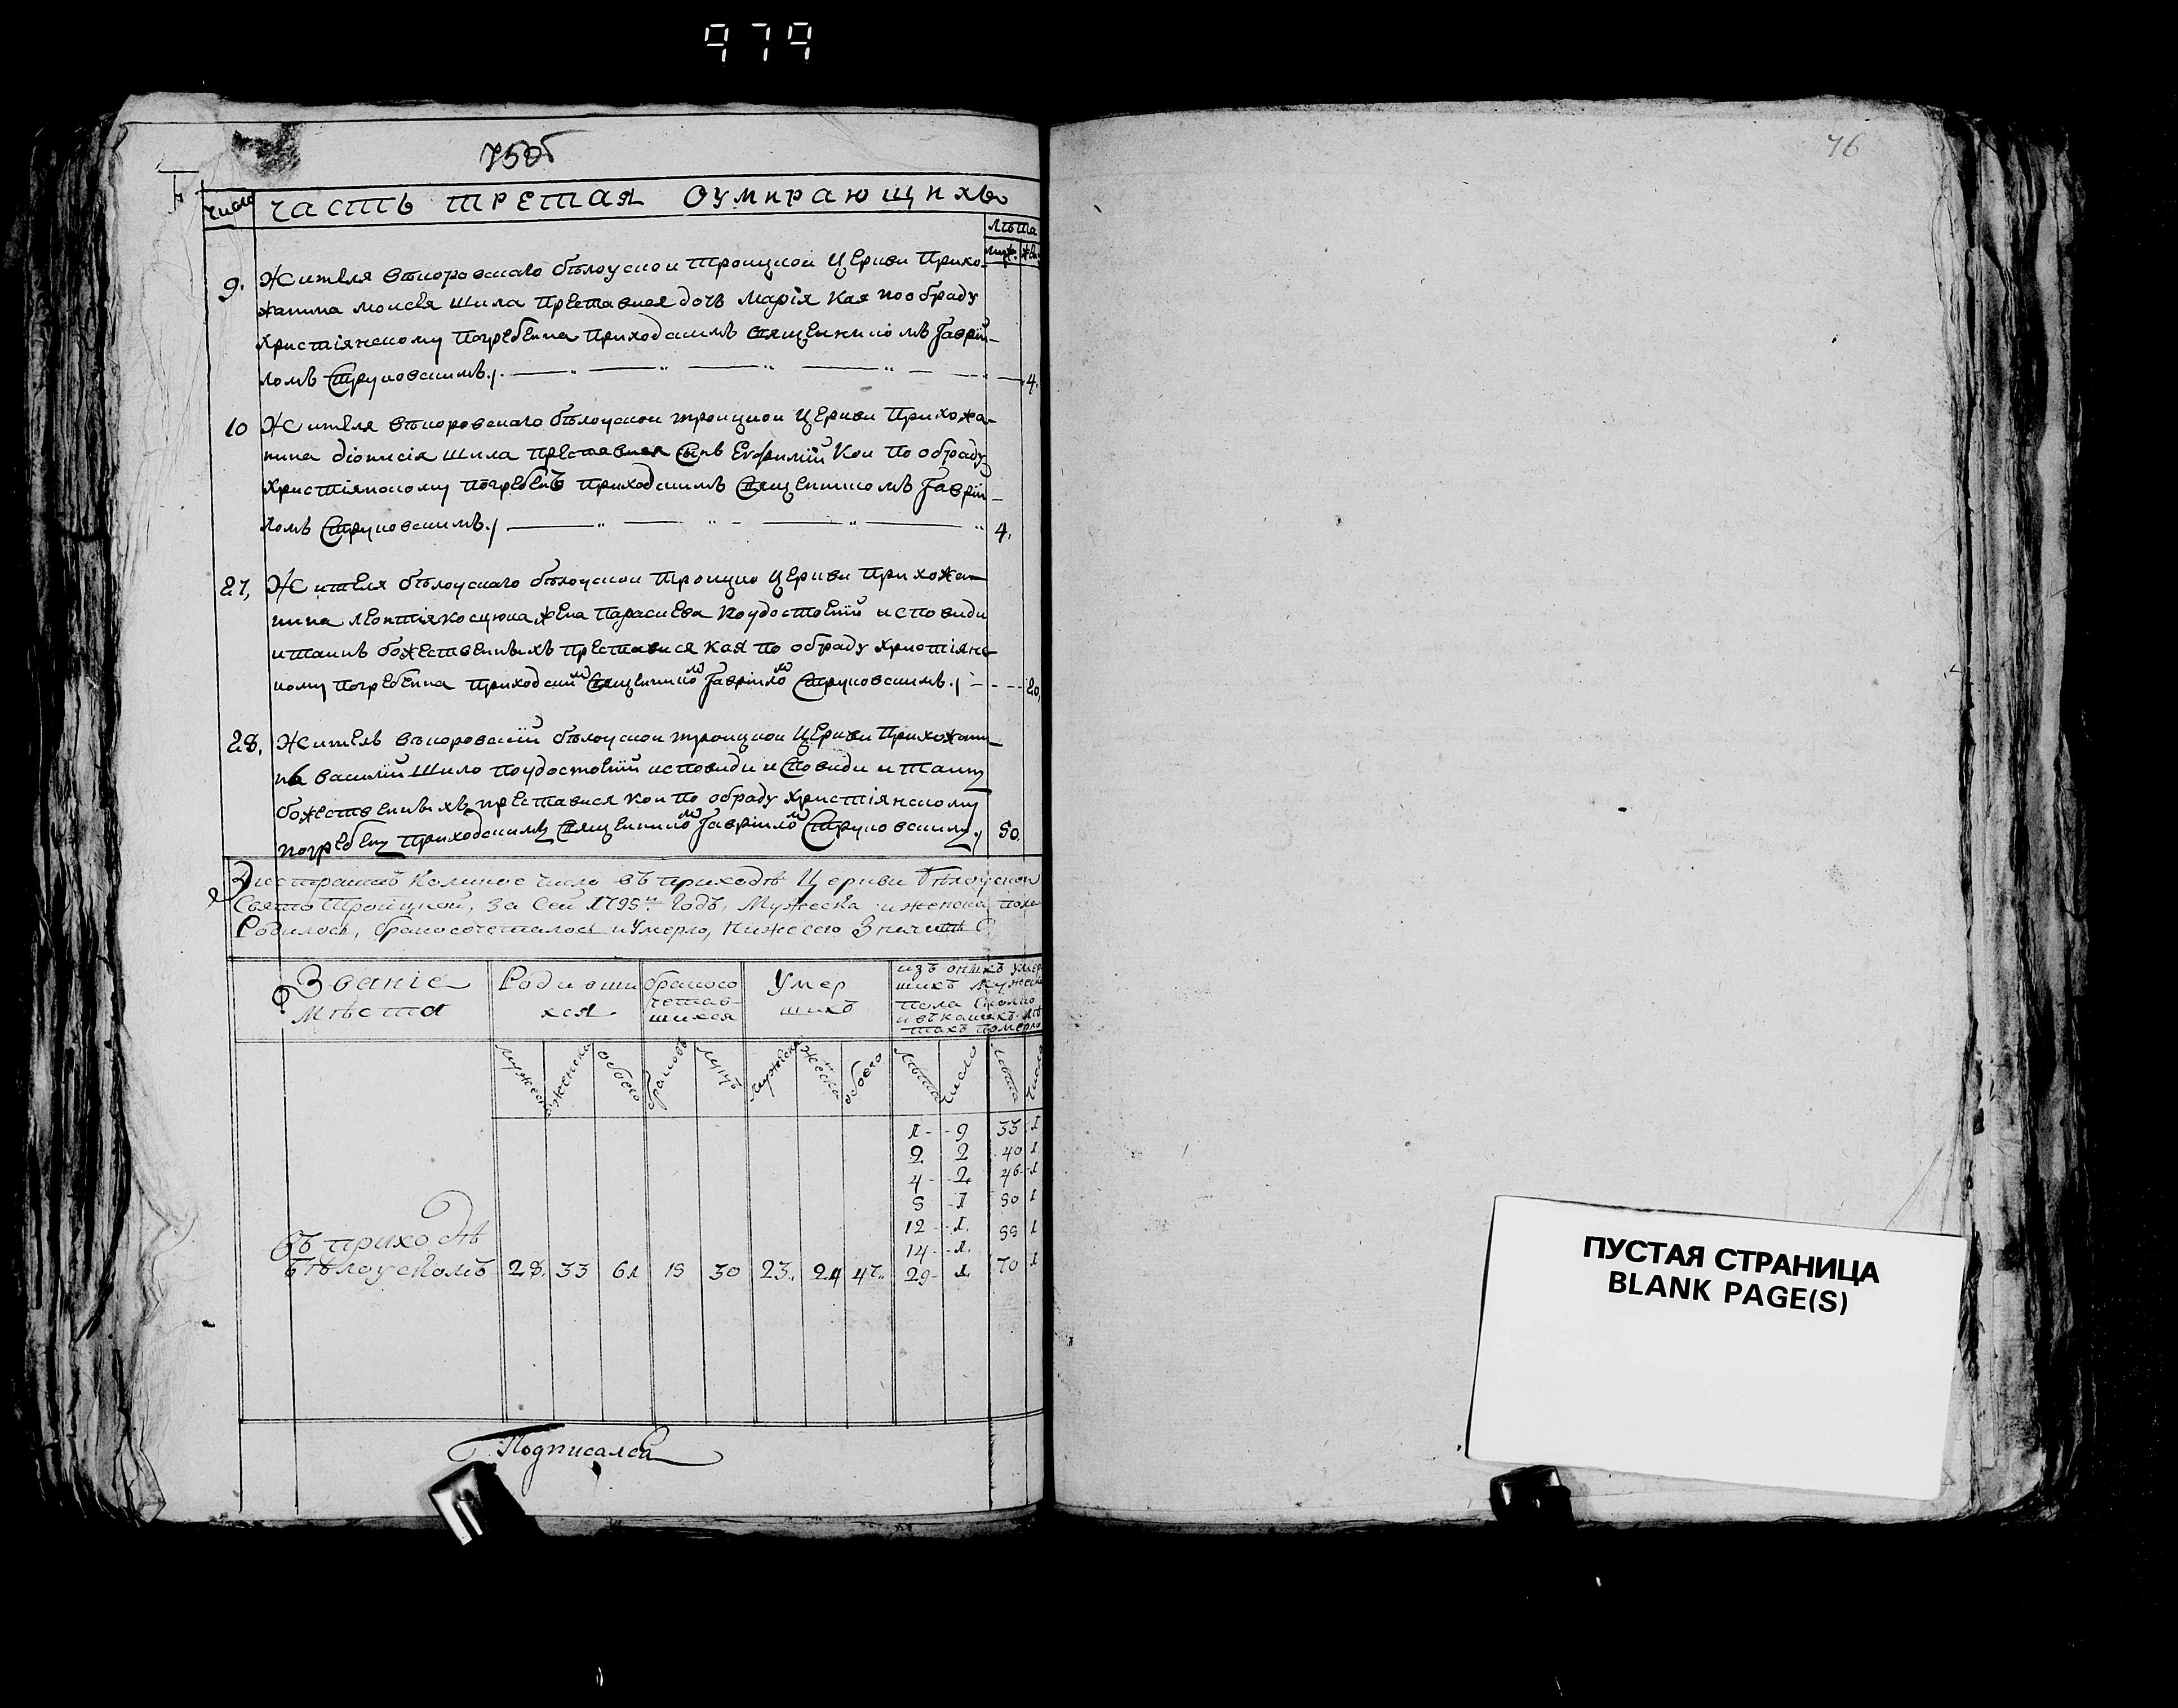 979
75об
Число
часть третая оумирающихъ
лѣта
муж. жен.
9. Жителя вѣноровскаго бѣлоускои троицкои церкви прихо-
жанина моисея шила преставися дочь марія кая по обряду
христіянскому погребенна приходскимъ священникомъ Гаврій-
ломъ Струковскимъ. 4.
10 Жителя вѣноровскаго бѣлоускои троицкои церкви прихожа-
нина діонисія шила преставися сынъ Евфимій кои по обряду
христіянскому погребенъ приходскимъ священникомъ Гаврій-
ломъ Струковскимъ. 4.
27, Жителя бѣлоускаго бѣлоускои троицко церкви прихожа-
нина леонтія жена параскева по удостоеніи исповиди
и таинъ божественныхъ преставися кая по обряду христіянс
кому погребенна приходскимъ священникомъ Гавріиломъ Струковскимъ. 20,
28, Житель вѣноровскій бѣлоускои троицкои церкви прихожани-
нъ василій Шило по удостоеніи исповиди и Сповиди и таинъ
божественныхъ преставися кои по обряду христіянскому
погребенъ приходскимъ священникомъ Гавріиломъ Струковскимъ. 50.
Коликое число въ приходѣ Церкви Бѣлоускои
Свято Троицкой, за Сей 1795й Годъ, Мужеска и женска пола
Родилось, бракосочеталось и Умерло, Нижесего Значитъ С.
Званіе
мѣста
Родивши
хся
бракосо
четав-
шихся
Умер
шихъ
изъ онихъ умер
шихъ мужеска
пола сколко
и въ какихъ лѣ
тахъ померло
мужеск женска обоего браковъ лицъ мужеска женска обоего лѣта число лѣта число
1 - 9 33 1
2 2 40 1
4 - 2 46 - 1
5 - 1 50 1
12 - 1. 55 1
14 - 1.
въ приходѣ
бѣлоускомъ 28. 33 61 15 30 23. 24 47. 29 - 1. 70 1
Подписалса
76
ПУСТАЯ СТРАНИЦА
BLANK PAGE(S)